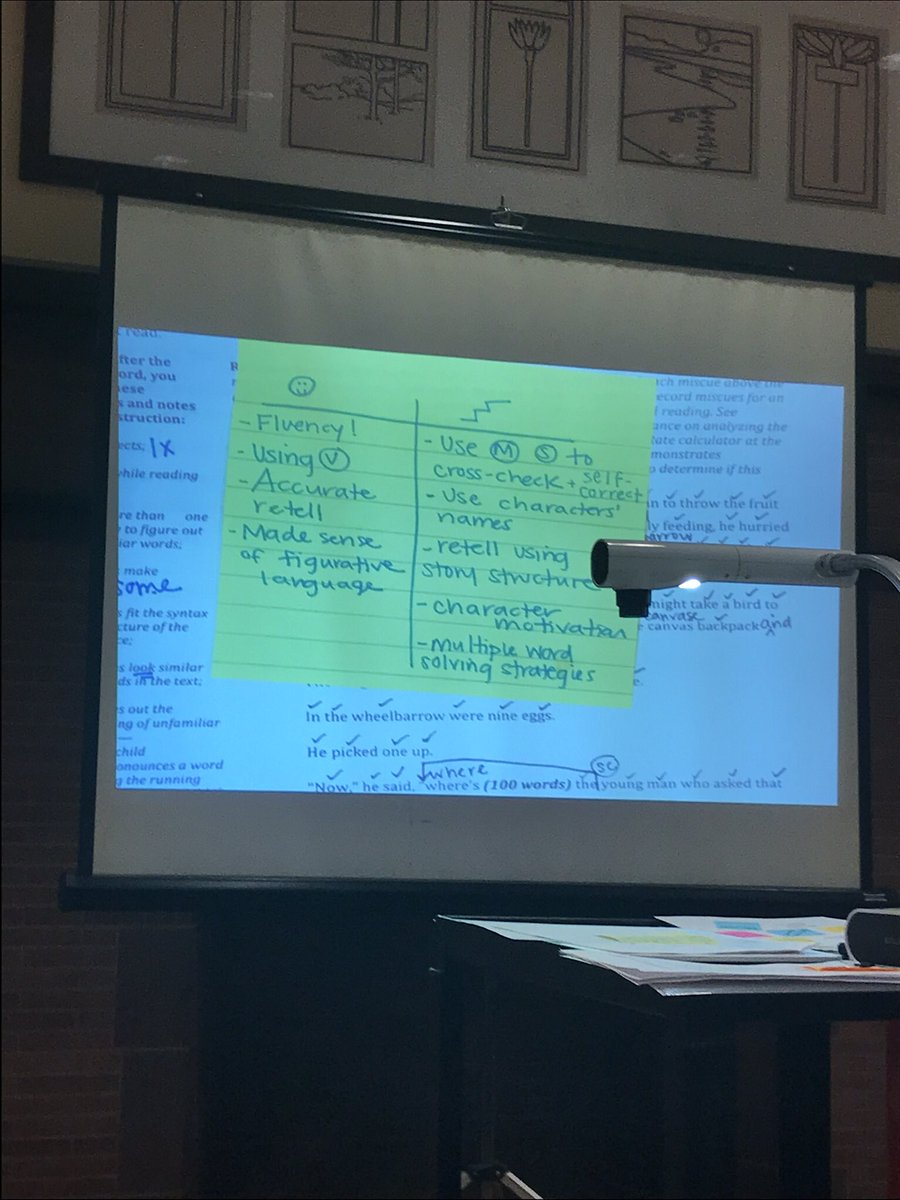 read.
fter the
ord, you
ese
s and notes
struction:
ects; 1x
while reading
re than one
to figure out
iar words;
make
some
s fit the syntax
cture of the
ce;
s look similar
ds in the text;
s out the
ng of unfamiliar
child
onounces a word
g the running
- Fluency!
- Using V
- Accurate
retell
- Made sense
of figurative
language
- Use M S to
cross-check + self-
correct
- Use characters'
names
- retell using
story structure
- character
motivation
- multiple word
solving strategies
ch miscue above the
ecord miscues for an
reading. See
ance on analyzing the
ate calculator at the
monstrates
determine if this
n to throw the fruit
ly feeding, he hurried
arrow
might take a bird to
canvase
canvas backpack and
e.
In the wheelbarrow were nine eggs.
He picked one up.
where SC
"Now," he said, "where's (100 words) the young man who asked that